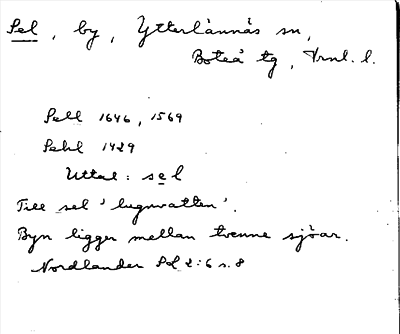 Sel, by, Ytterlännäs sn,
Boteå tg, Vrnl. l.
Sell 1646, 1569
Sehl 1429
Uttal: sel
Till sel 'lugnvatten'.
Byn ligger mellan tvenne sjöar.
Nordlander Sol 2:6 s. 8